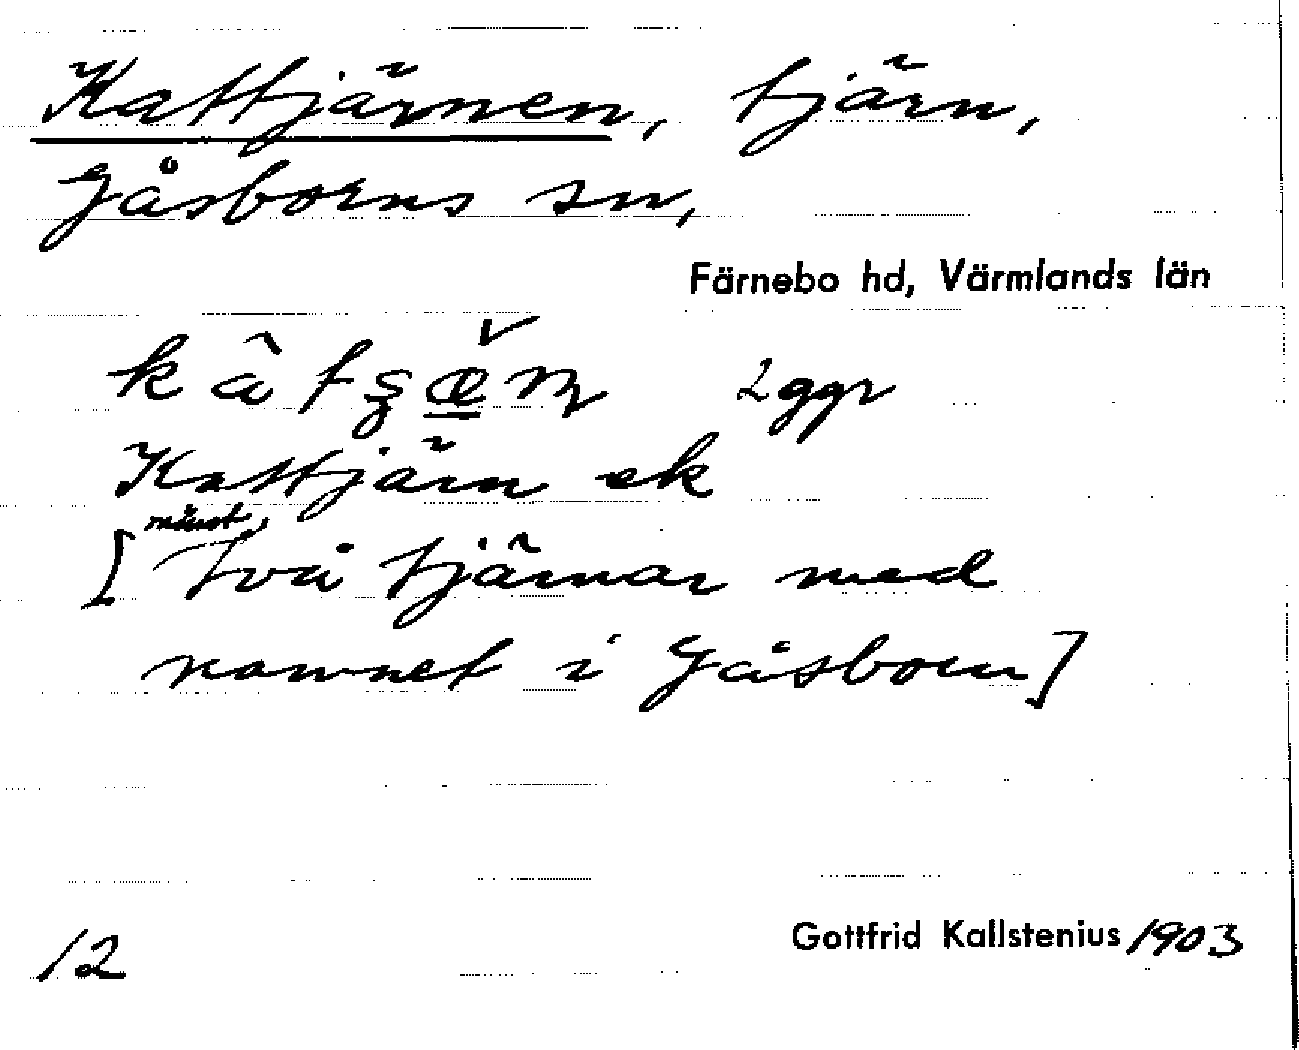 Kattjärnen, tjärn,
Gåsborns sn,
Färnebo hd, Värmlands län
2 ggr
Kattjärn ek
minst
[två tjärnar med
namnet i Gåsborn]
12
Gottfrid Kallstenius 1903